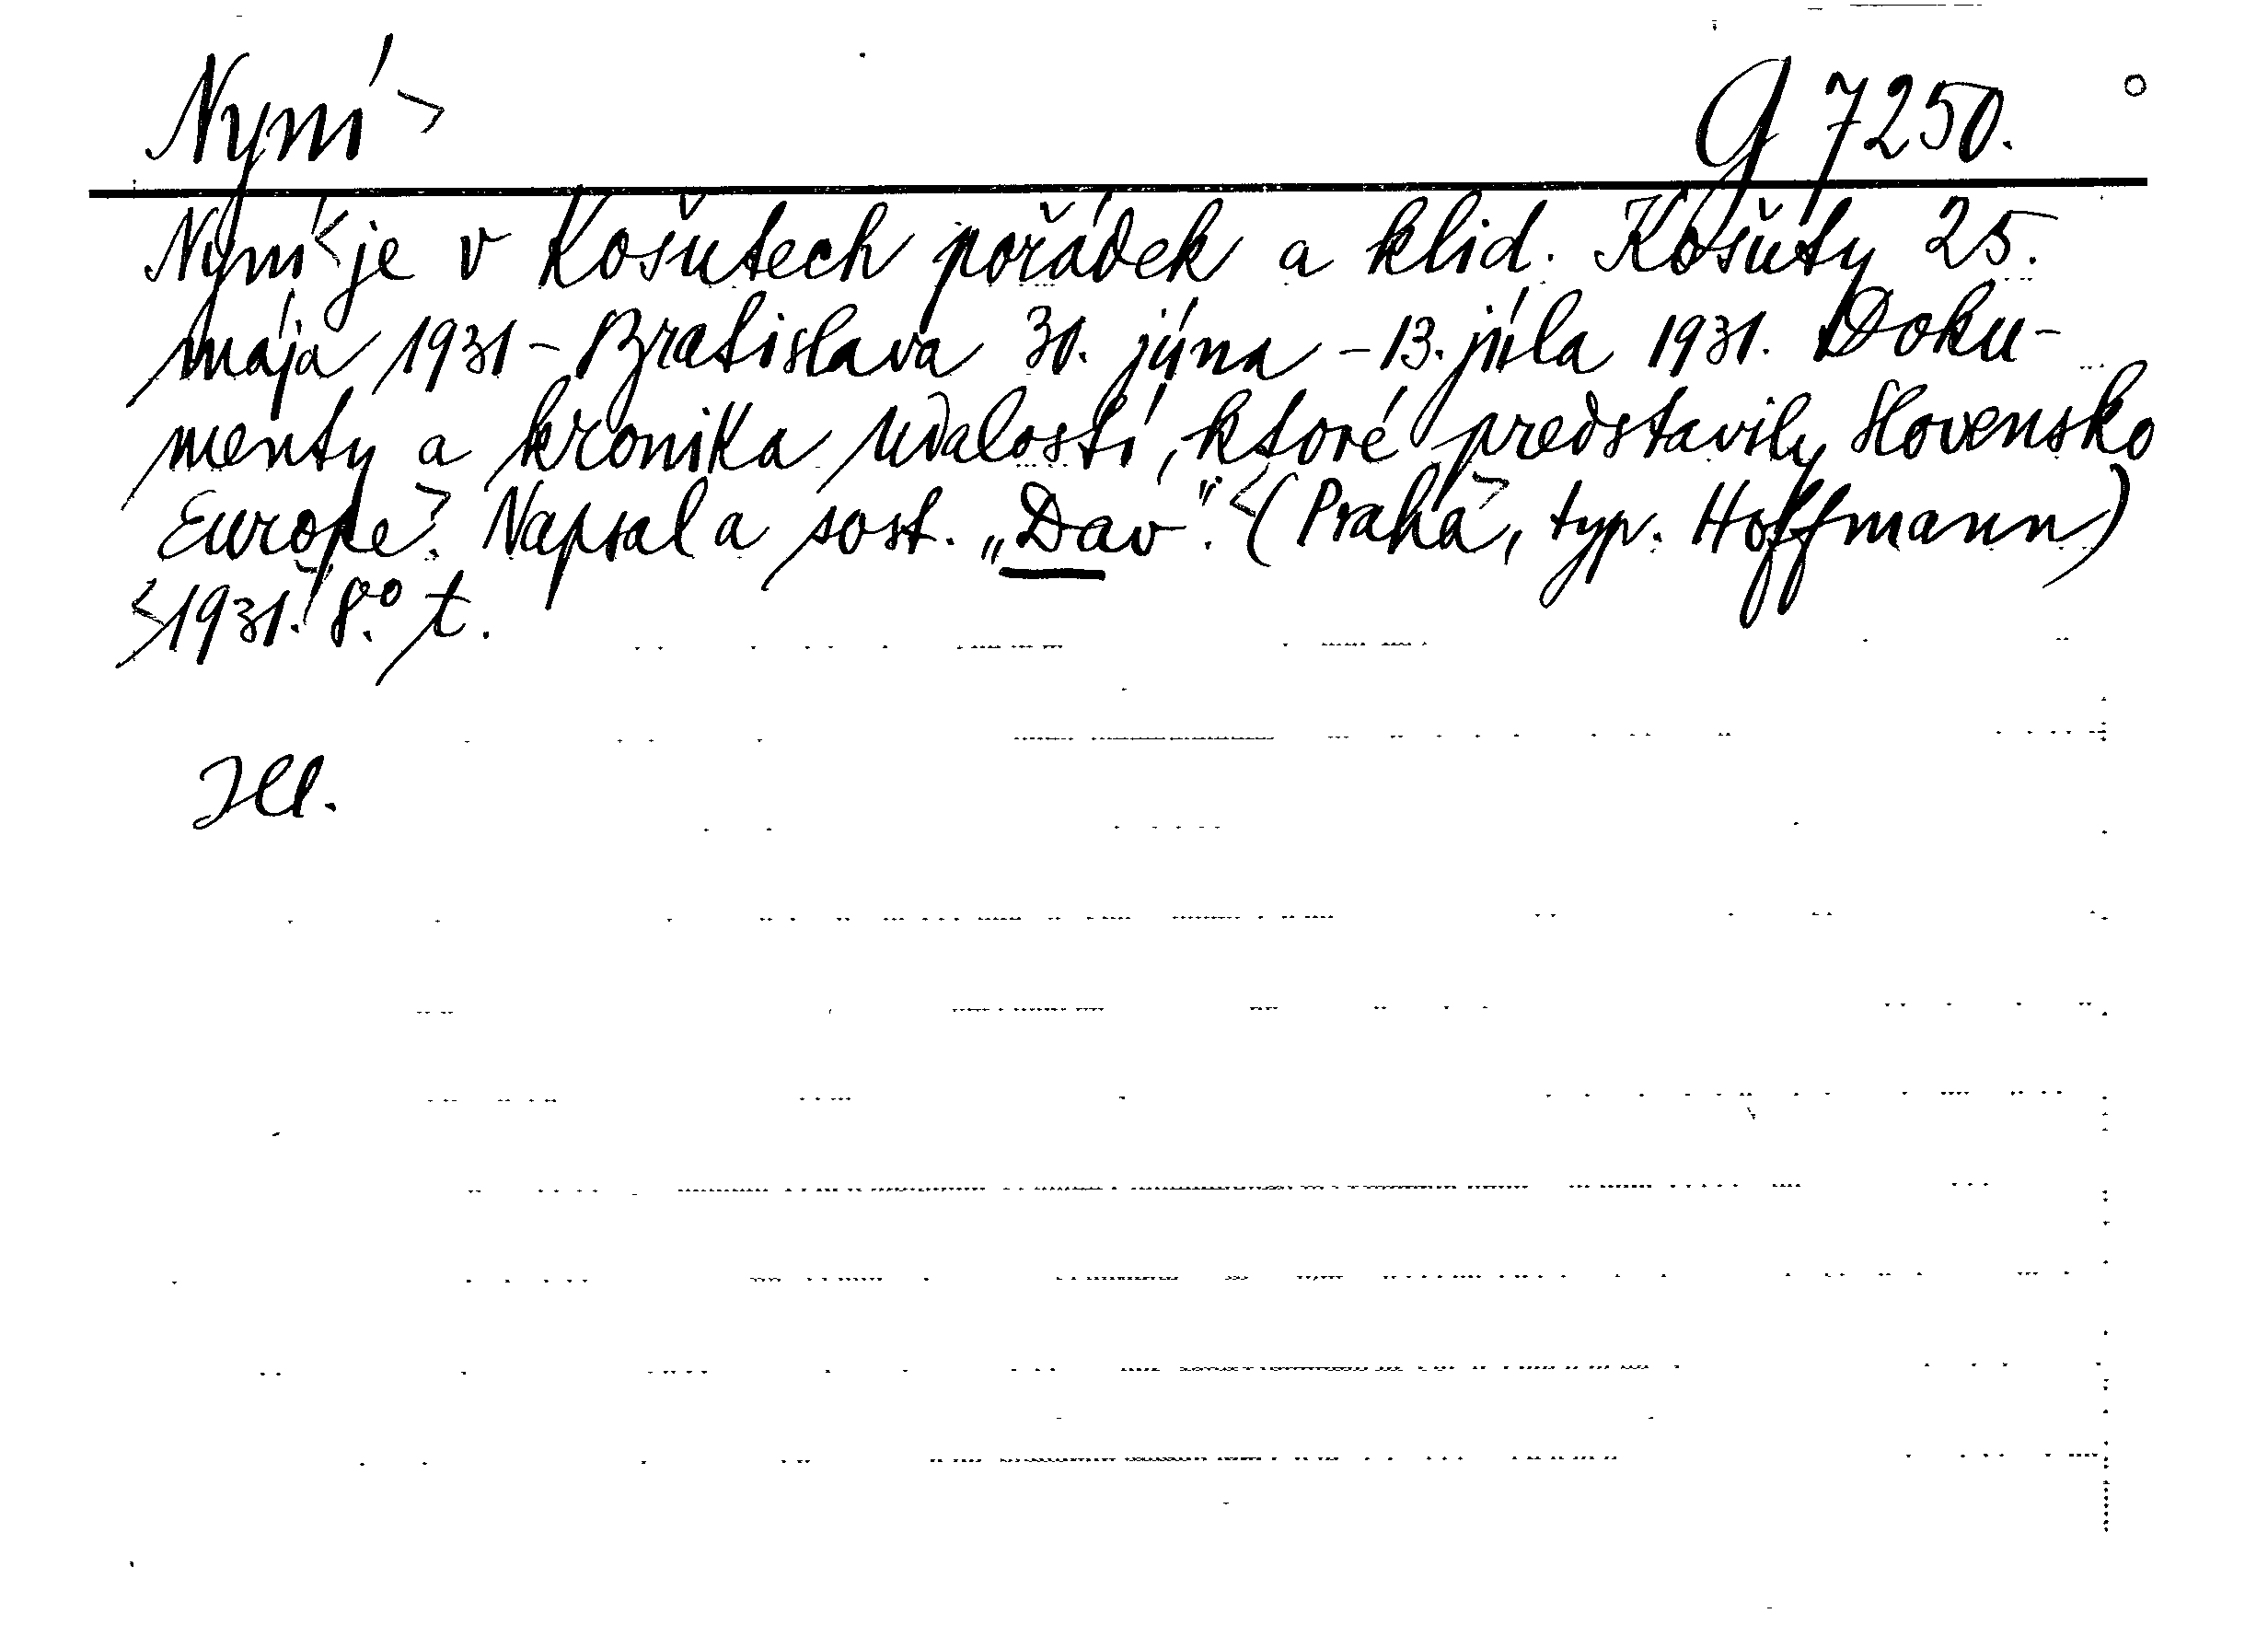 Nyní >
G 7250.
Nyní < je v Košutech pořádek a klid. Košúty 25.
mája 1931 - Bratislava 30. júna - 13. júla 1931. Doku-
menty a kronika udalostí, ktoré predstavily Slovensko
Europe >. Napsal a sost. „Dav". < (Praha >, typ. Hoffmann)
< 1931. 8.° t.
Ill.